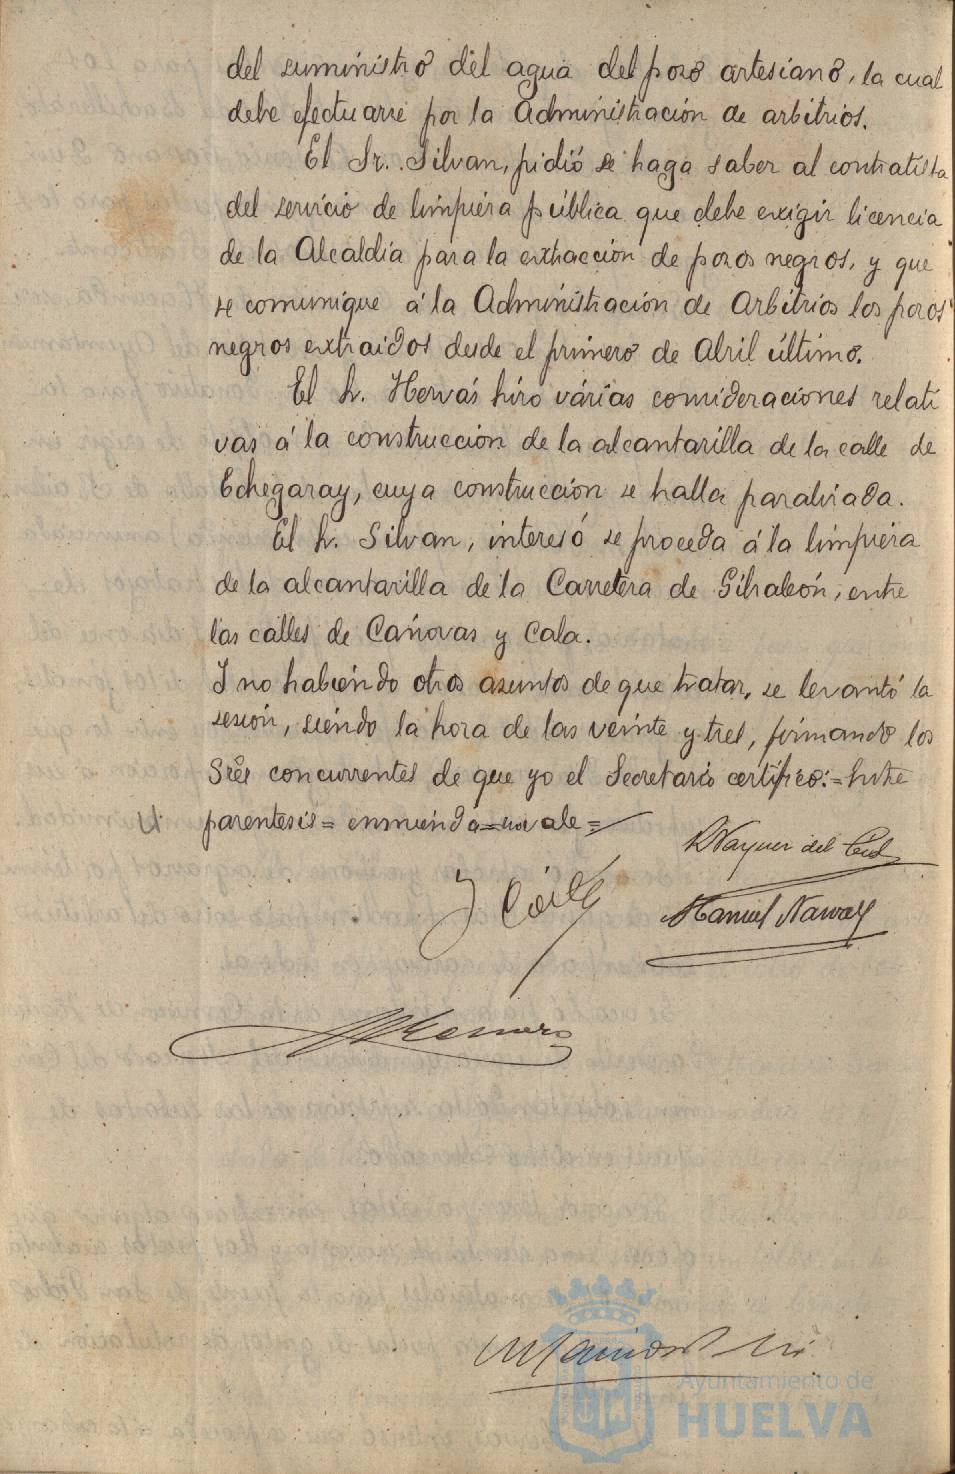 del suministro del agua del pozo artesiano, la cual
debe efectuarse por la Administración de arbitrios.
El Sr. Silvan, pidió se haga saber al contratista
del servicio de limpieza pública que debe exigir licencia
de la Alcaldía para la extracción de pozos negros, y que
se comunique á la Administración de Arbitrios los pozos
negros extraidos desde el primero de Abril último.
El Sr. Hervás hizo várias consideraciones relati
vas á la construcción de la alcantarilla de la calle de
Echegaray, cuya construcción se halla paralizada.
El Sr. Silvan, interesó se proceda á la limpieza
de la alcantarilla de la Carretera de Gibraleón, entre
las calles de Cánovas y Cala.
Y no habiendo otros asuntos de que tratar, se levantó la
sesión, siendo la hora de las veinte y tres, firmando los
Sres concurrentes de que yo el Secretario certifico:=Entre
parentesis= enmienda=no vale=
Manuel Navarro
Ayuntamiento de
HUELVA